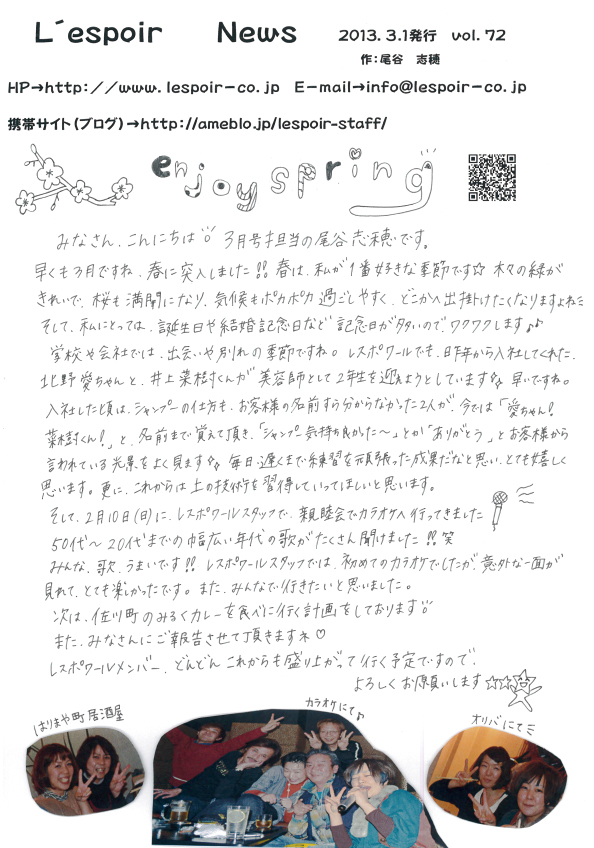 L´espoir News 2013. 3.1発行 vol.72
作:尾谷 志穂
HP→http://www.lespoir-co.jp E-mail→info@lespoir-co.jp
携帯サイト(ブログ)→http://ameblo.jp/lespoir-staff/
enjoy spring
みなさん、こんにちは 3月号担当の尾谷志穂です。
早くも3月ですね、春に突入しました!! 春は、私が1番好きな季節です☆ 木々の緑が
きれいで、桜も満開になり、気候もポカポカ過ごしやすく、どこかへ出掛けたくなりますよね
そして、私にとっては、誕生日や結婚記念日など記念日が多いので、ワクワクします♪♪
学校や会社では、出会いや別れの季節ですね。レスポワールでも、昨年から入社してくれた、
北野愛ちゃんと、井上菜樹くんが美容師として2年生を迎えようとしています 早いですね。
入社した頃は、シャンプーの仕方も、お客様の名前すら分からなかった2人が、今では「愛ちゃん!
菜樹くん!」と、名前まで覚えて頂き、「シャンプー気持ち良かった〜」とか「ありがとう」とお客様から
言われている光景をよく見ます 毎日遅くまで練習を頑張った成果だなと思い、とても嬉しく
思います。更に、これからは上の技術を習得していってほしいと思います。
そして、2月10日(日)に、レスポワールスタッフで、親睦会でカラオケへ行ってきました
50代〜20代までの幅広い年代の歌がたくさん聞けました!! 笑
みんな、歌、うまいです!! レスポワールスタッフでは、初めてのカラオケでしたが、意外な一面が
見れて、とても楽しかったです。また、みんなで行きたいと思いました。
次は、佐川町のみるくカレーを食べに行く計画をしております
また、みなさんにご報告させて頂きますネ♡
レスポワールメンバー、どんどんこれからも盛り上がって行く予定ですので、
よろしくお願いします ☆☆
はりまや町居酒屋
カラオケにて♪
オリバにて